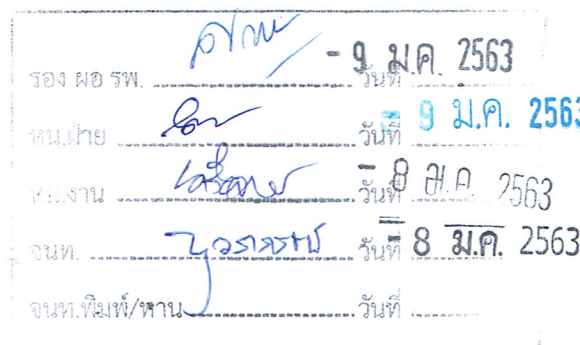 รอง ผอ รพ. วันที่ - 9 ม.ค. 2563
หน.ฝ่าย วันที่ = 9 ม.ค. 2563
หน.งาน วันที่ - 8 ม.ค. 2563
จนท. วันที่ = 8 ม.ค. 2563
จนท.พิมพ์/ทาน วันที่